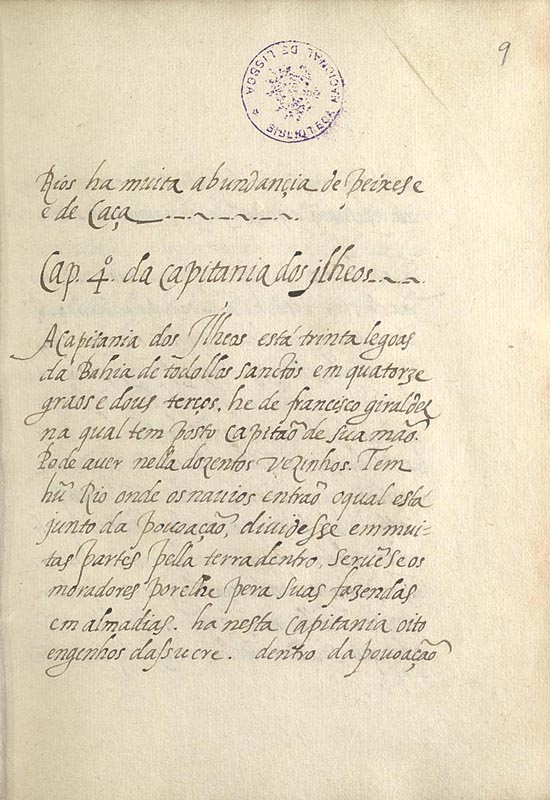 9
BIBLIOTECA NACIONAL DE LISBOA
Rios ha muita abundançia de peixes e
e de Caça
Cap. 4º. da capitania dos jlheos
A Capitania dos Jlheos está trinta legoas
da Bahia de todollos sanctos em quatorze
graos e dous terços, he de francisco giraldez
na qual tem posto capitaõ de sua maõ.
Pode aver nella dozentos vezinhos. Tem
hũ Rio onde os nauios entraõ o qual está
junto da pouoaçaõ, dividesse em mui-
tas partes pella terra dentro, seruẽse os
moradores por elhe pera suas fazendas
em almadias. ha nesta capitania oito
engenhos dassucre. dentro da pouoaçaõ